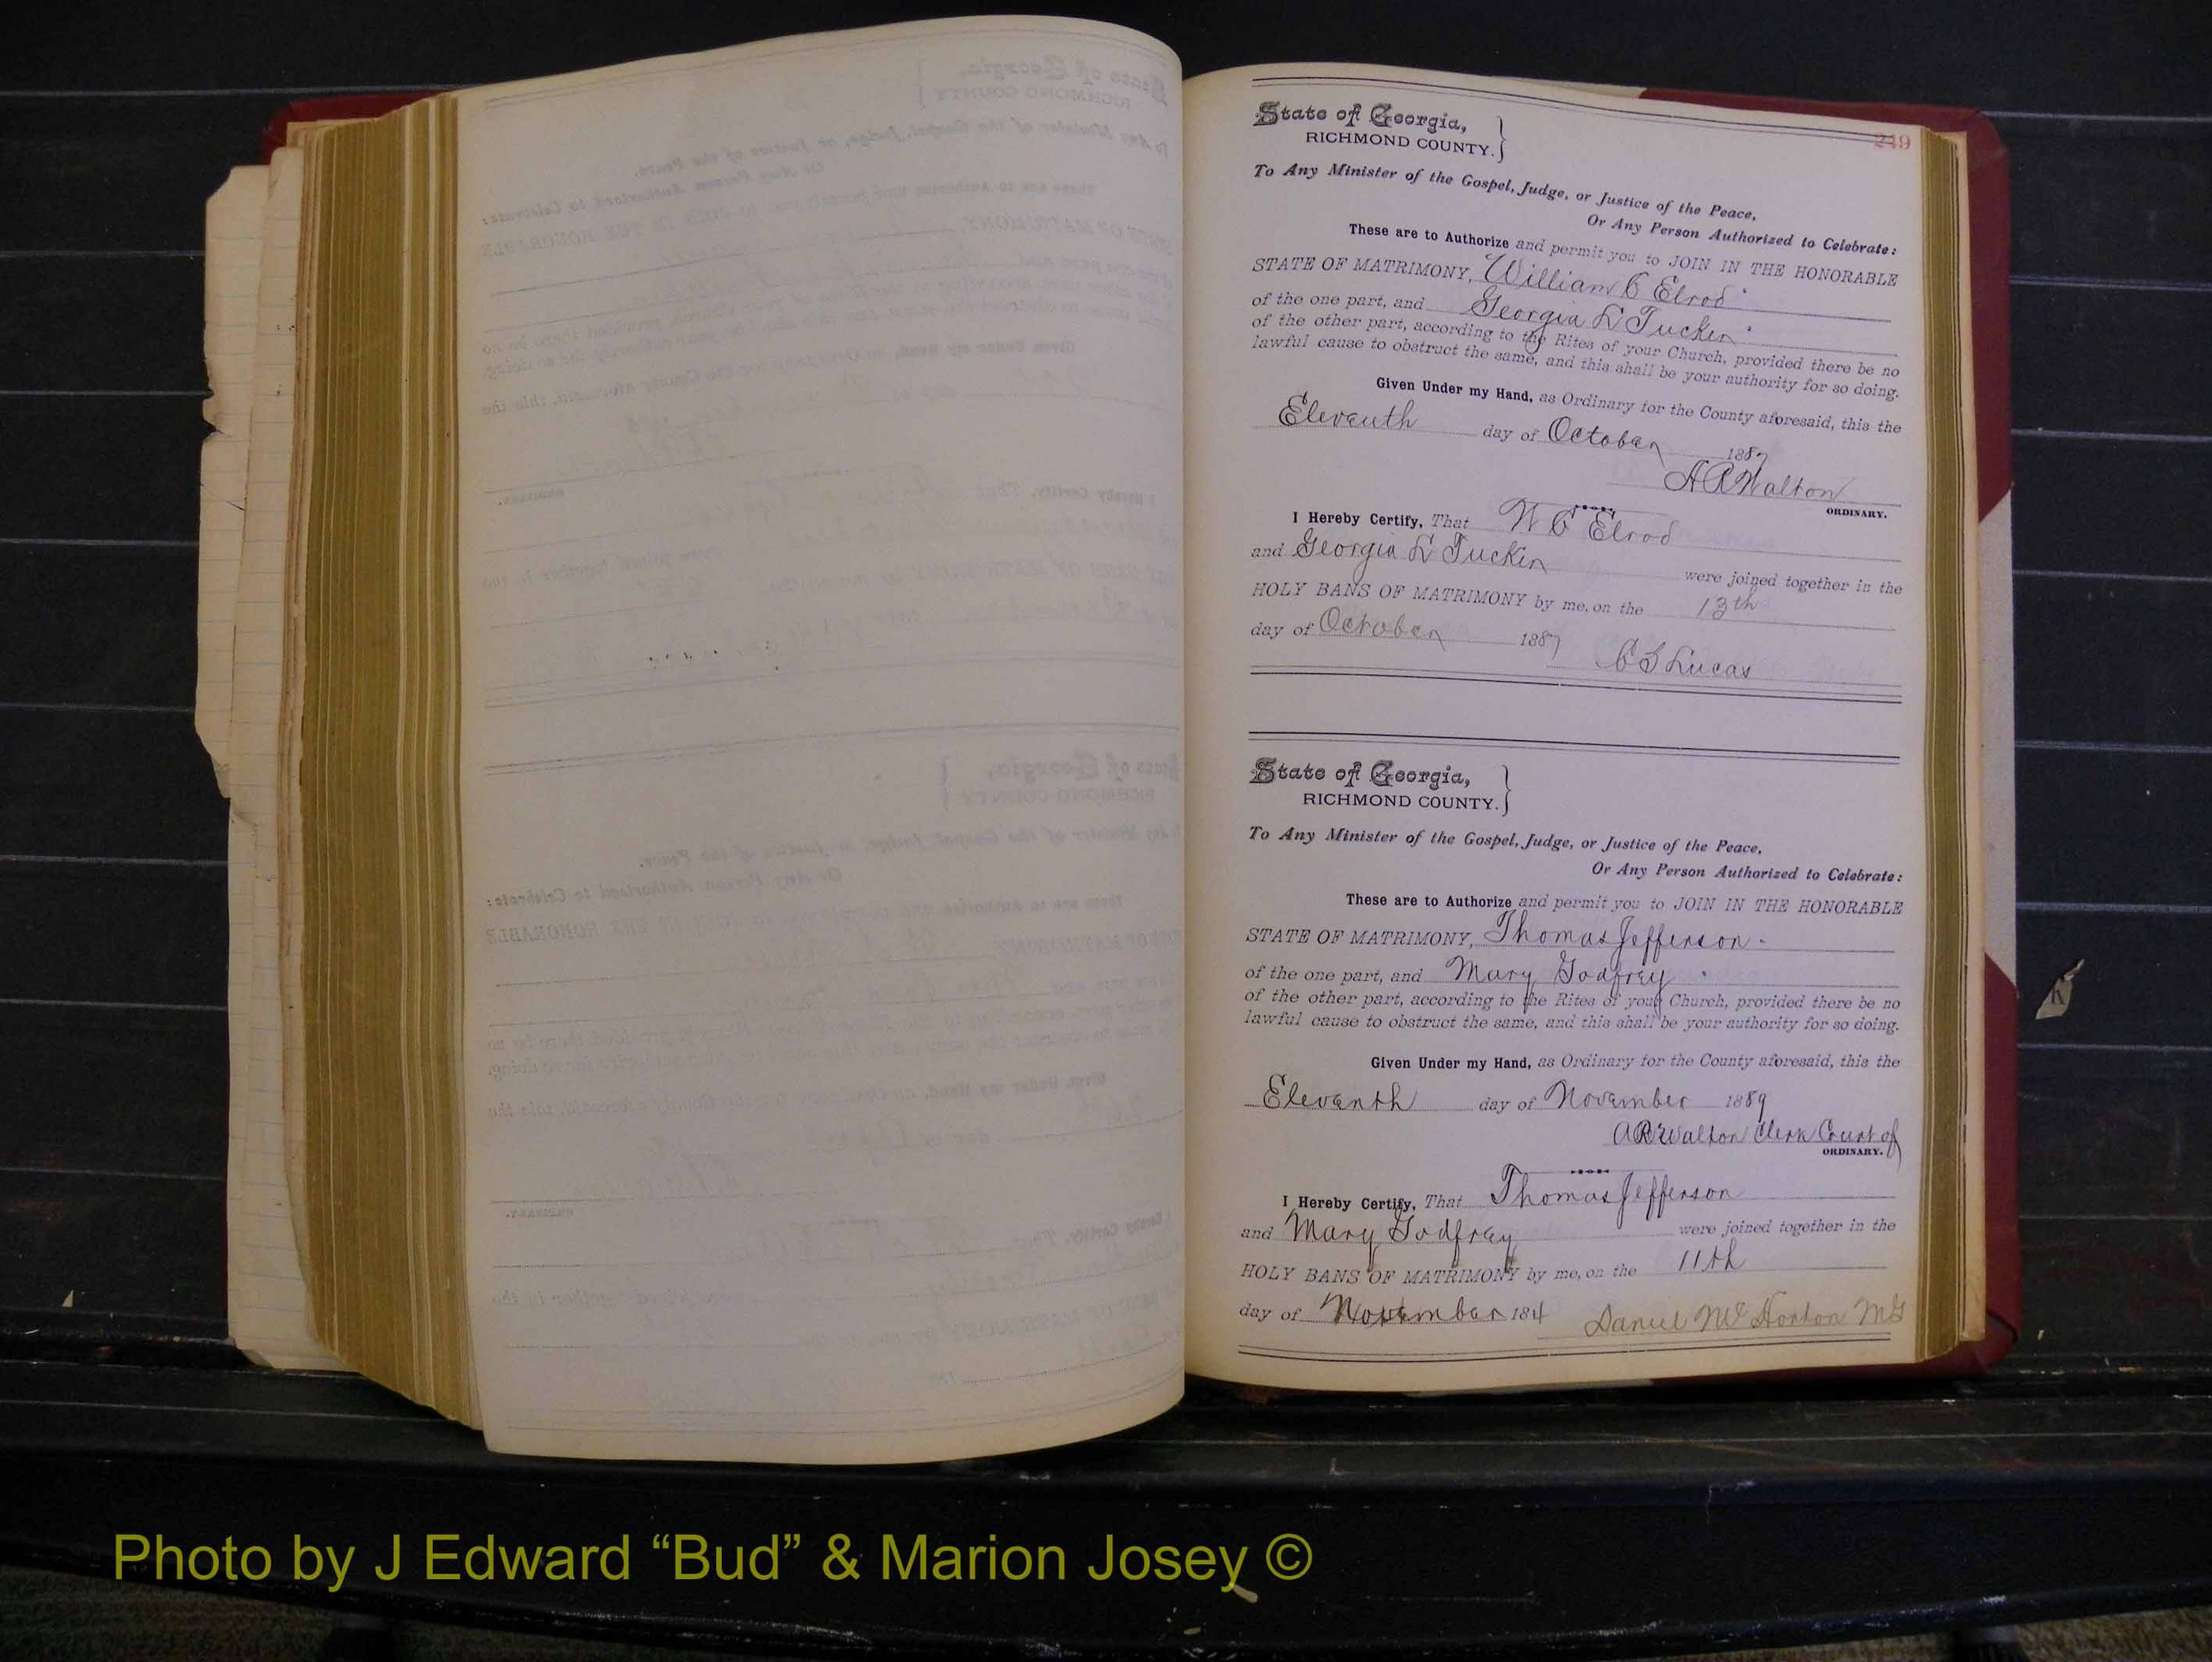 249
State of Georgia,
RICHMOND COUNTY.
To Any Minister of the Gospel, Judge, or Justice of the Peace,
Or Any Person Authorized to Celebrate:
These are to Authorize and permit you to JOIN IN THE HONORABLE
STATE OF MATRIMONY, William C Elrod
of the one part, and Georgia L Tucker
of the other part, according to the Rites of your Church, provided there be no
lawful cause to obstruct the same, and this shall be your authority for so doing.
Given Under my Hand, as Ordinary for the County aforesaid, this the
Eleventh day of October 1887
A R Walton
ORDINARY.
I Hereby Certify, That W C Elrod
and Georgia L Tucker were joined together in the
HOLY BANS OF MATRIMONY by me, on the 13th
day of October 1887
Lucas
State of Georgia,
RICHMOND COUNTY.
To Any Minister of the Gospel, Judge, or Justice of the Peace,
Or Any Person Authorized to Celebrate:
These are to Authorize and permit you to JOIN IN THE HONORABLE
STATE OF MATRIMONY, Thomas Jefferson
of the one part, and Mary Godfrey
of the other part, according to the Rites of your Church, provided there be no
lawful cause to obstruct the same, and this shall be your authority for so doing.
Given Under my Hand, as Ordinary for the County aforesaid, this the
Eleventh day of November 1889
A R Walton Clerk Court of
ORDINARY.
I Hereby Certify, That Thomas Jefferson
and Mary Godfrey were joined together in the
HOLY BANS OF MATRIMONY by me, on the 11th
day of November 184
Daniel Mc Horton MG
Photo by J Edward “Bud” & Marion Josey ©